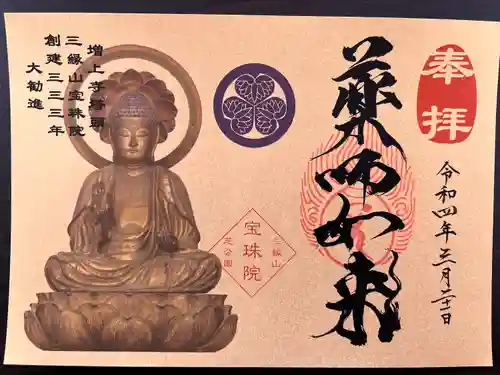 奉拝
令和四年三月二十一日
薬師如来
宝珠院
三縁山
芝公園
増上寺塔頭
三縁山宝珠院
創建三三三年
大勧進